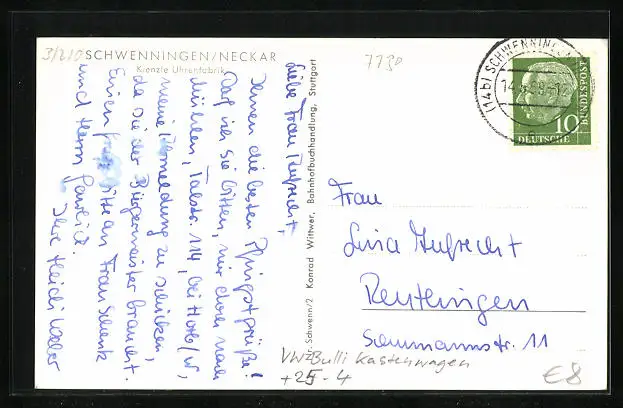 3/210
SCHWENNINGEN/NECKAR
Kienzle Uhrenfabrik
7730
(14b) SCHWENNINGEN
14.5.59-12
10
DEUTSCHE
BUNDESPOST
Liebe Frau Ruprecht,
Ihnen die besten Pfingstgrüße!
Darf ich Sie bitten, mir doch nach
Mühlen, Talstr. 114, bei Horb/N,
meine Abmeldung zu schicken,
da sie der Bürgermeister braucht.
Einen Gruß bitte an Frau Schenk
und Herrn
Ihre Heidi
Schwenn/2 Konrad Wittwer, Bahnhofbuchhandlung, Stuttgart
Frau
Luise Ruprecht
Reutlingen
Schumannstr. 11
VW-Bulli Kastenwagen
+25-4
€8